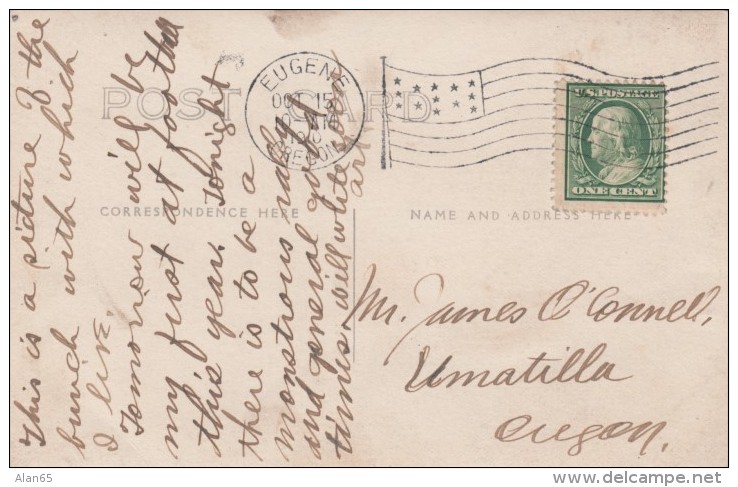 POST CARD
EUGENE
OCT 15
OREGON
U.S. POSTAGE
ONE CENT
CORRESPONDENCE HERE
NAME AND ADDRESS HERE
This is a picture of the
bunch with which
I live.
Tomorrow will be
my first at football
this year. Tonight
there is to be a
monstrous rally
and general
times. will write
Mr. James O'Connell,
Umatilla
Oregon.
Alan65
www.delcampe.net